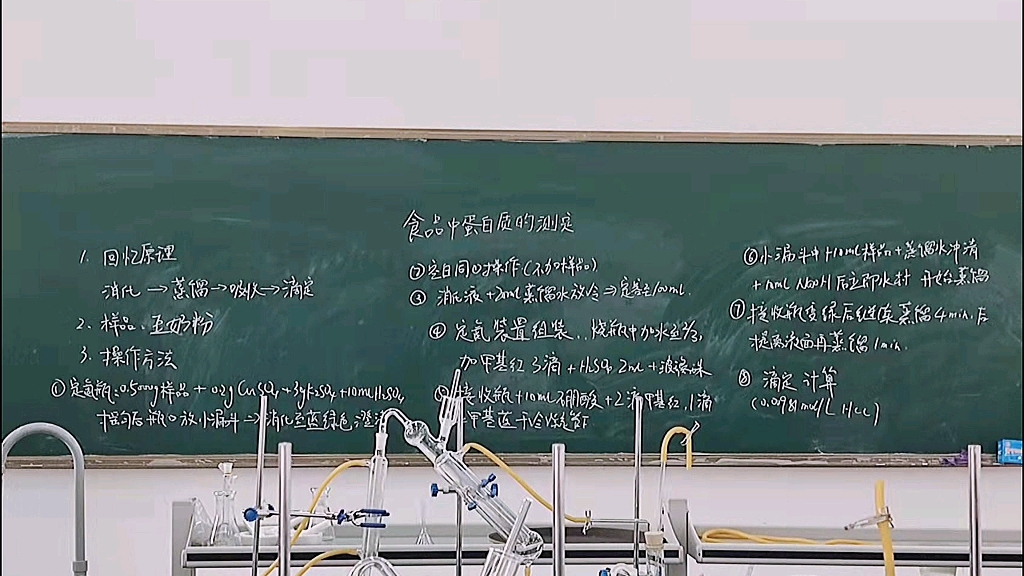 食品中蛋白质的测定
1. 回忆原理
消化→蒸馏→吸收→滴定
2. 样品、豆奶粉
3. 操作方法
① 定氮瓶:0.5000g样品+0.2g CuSO4+3g K2SO4+10mL H2SO4
摇匀后瓶口放小漏斗→消化至蓝绿色澄清
②空白同①操作(不加样品)
③ 消化液+20mL蒸馏水放冷⇒定容至100mL.
④ 定氮装置组装.烧瓶中加水至2/3,
加甲基红3滴+H2SO4 2mL+玻璃珠
接收瓶+10mL硼酸+2滴甲基红,1滴
甲基蓝于冷凝管下
⑥小漏斗中+10mL样品+蒸馏水冲清
+10mL NaOH后立即水封 开始蒸馏
⑦ 接收瓶变绿后继续蒸馏4min.后
提离液面再蒸馏1min.
⑧ 滴定 计算
(0.0981mol/L HCl)